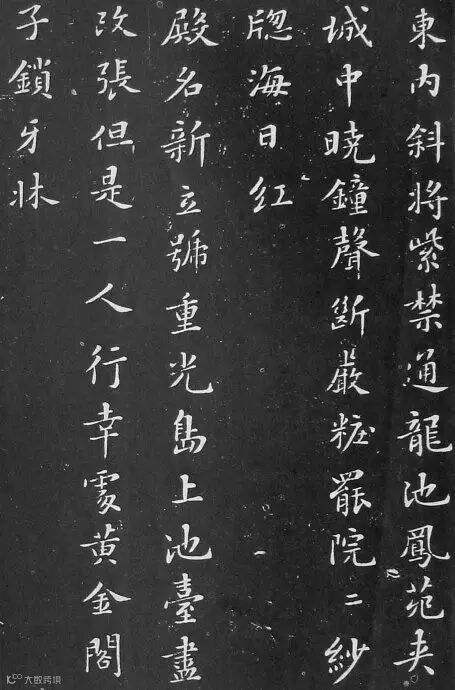 東內斜將紫禁通龍池鳳苑夾
城中曉鐘聲斷嚴粧罷院二紗
牕海日紅
殿名新立號重光島上池臺盡
改張但是一人行幸處黃金閣
子鎖牙牀
大数跨境